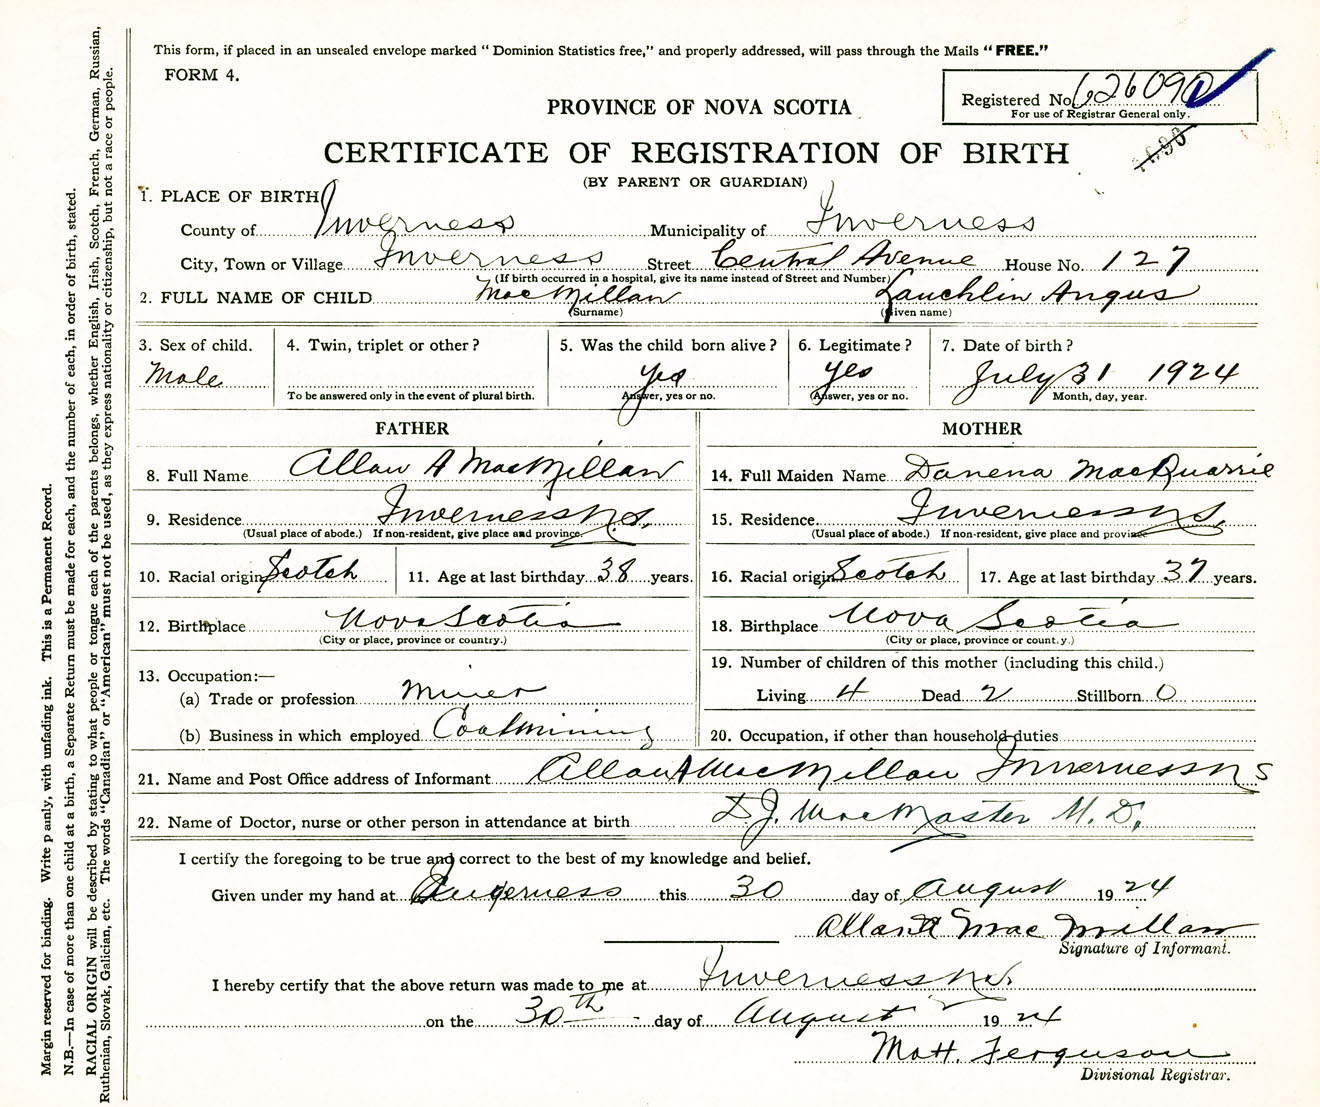 This form, if placed in an unsealed envelope marked "Dominion Statistics free," and properly addressed, will pass through the Mails "FREE."
FORM 4.
Registered No. 626090
For use of Registrar General only.
PROVINCE OF NOVA SCOTIA
CERTIFICATE OF REGISTRATION OF BIRTH
(BY PARENT OR GUARDIAN)
1. PLACE OF BIRTH
County of Inverness Municipality of Inverness
City, Town or Village Inverness Street Central Avenue House No. 127
(If birth occurred in a hospital, give its name instead of Street and Number)
2. FULL NAME OF CHILD MacMillan Lauchlin Angus
(Surname) (Given name)
3. Sex of child. 4. Twin, triplet or other? 5. Was the child born alive? 6. Legitimate? 7. Date of birth?
Male yes yes July 31 1924
To be answered only in the event of plural birth. Answer, yes or no. Answer, yes or no. Month, day, year.
FATHER MOTHER
8. Full Name Allan A MacMillan 14. Full Maiden Name Danena MacQuarrie
9. Residence Inverness N.S. 15. Residence Inverness N S.
(Usual place of abode.) If non-resident, give place and province. (Usual place of abode.) If non-resident, give place and province.
10. Racial origin Scotch 11. Age at last birthday 38 years. 16. Racial origin Scotch 17. Age at last birthday 37 years.
12. Birthplace Nova Scotia 18. Birthplace Nova Scotia
(City or place, province or country.) (City or place, province or count.y.)
13. Occupation:— 19. Number of children of this mother (including this child.)
(a) Trade or profession Miner Living 4 Dead 2 Stillborn 0
(b) Business in which employed Coalmining 20. Occupation, if other than household duties
21. Name and Post Office address of Informant Allan A MacMillan Inverness N S
22. Name of Doctor, nurse or other person in attendance at birth D J. MacMaster M.D.
I certify the foregoing to be true and correct to the best of my knowledge and belief.
Given under my hand at Inverness this 30 day of August 1924
Allan A MacMillan
Signature of Informant.
I hereby certify that the above return was made to me at Inverness N.S.
on the 30th day of August 1924
Matt. Ferguson
Divisional Registrar.
Margin reserved for binding. Write p anly, with unfading ink. This is a Permanent Record.
N.B.—In case of more than one child at a birth, a Separate Return must be made for each, and the number of each, in order of birth, stated.
RACIAL ORIGIN will be described by stating to what people or tongue each of the parents belongs, whether English, Irish, Scotch, French, German, Russian,
Ruthenian, Slovak, Galician, etc. The words "Canadian" or "American" must not be used, as they express nationality or citizenship, but not a race or people.